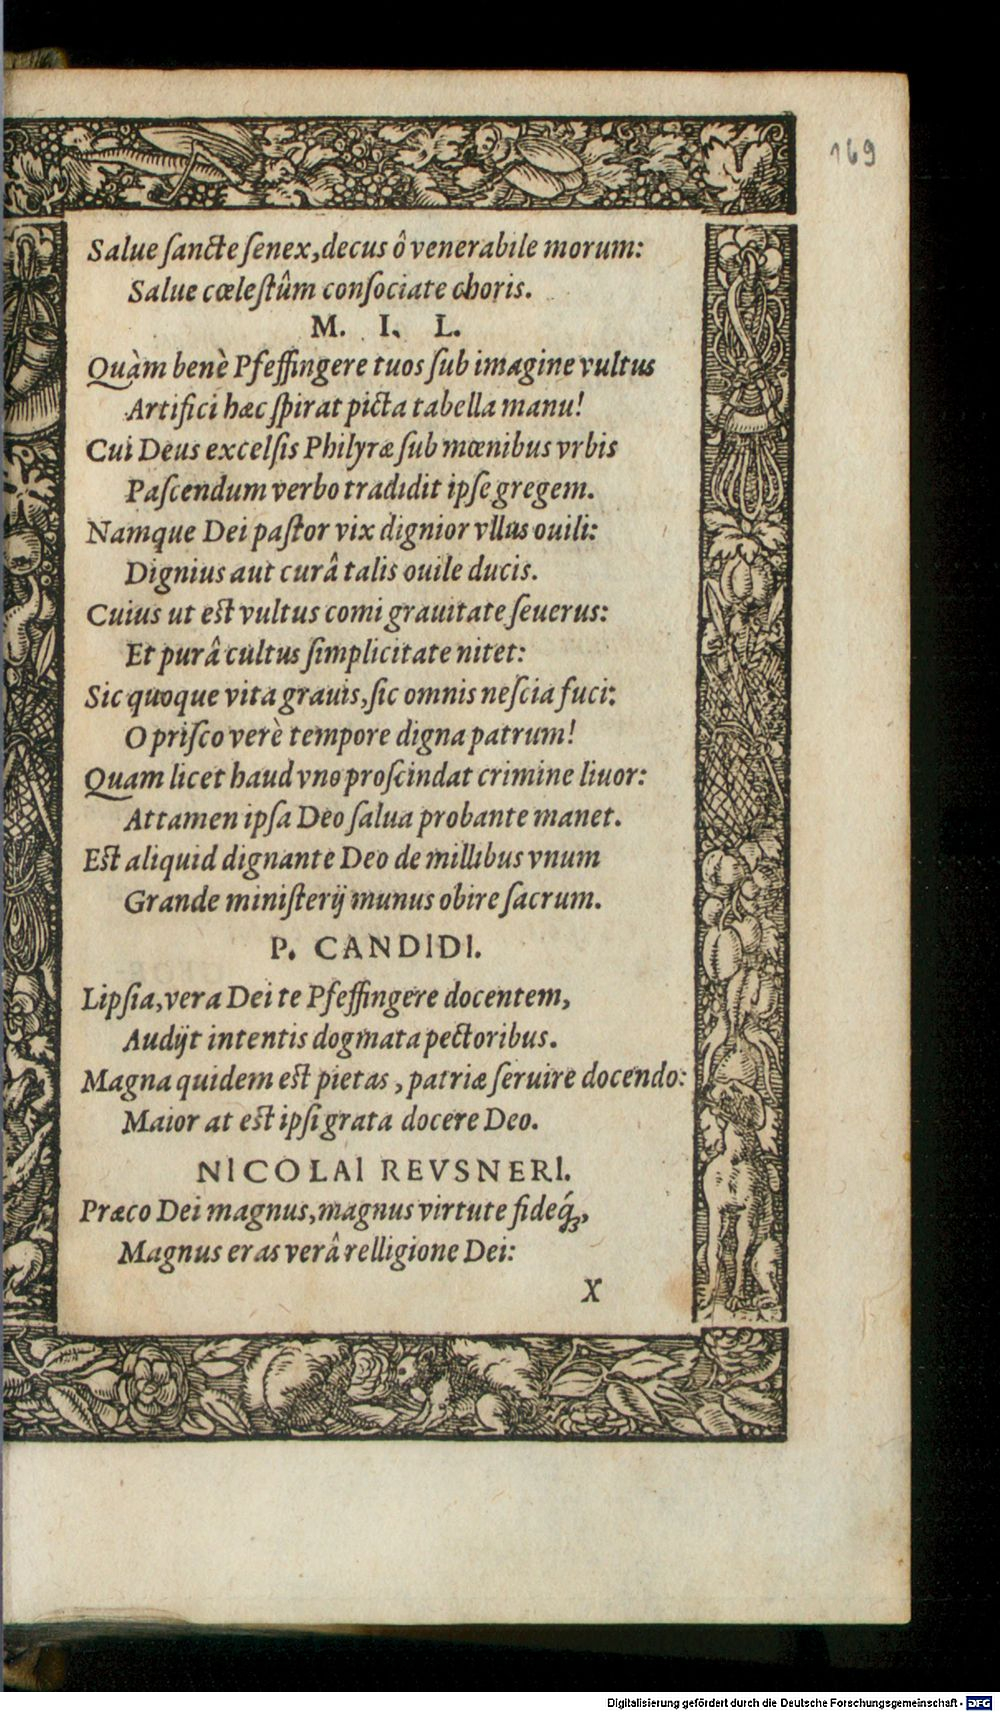 169
Salue ſancte ſenex, decus ô venerabile morum:
Salue cœleſtûm conſociate choris.
M. I. L.
Quàm benè Pfeffingere tuos ſub imagine vultus
Artifici hæc ſpirat picta tabella manu!
Cui Deus excelſis Philyræ ſub mœnibus vrbis
Paſcendum verbo tradidit ipſe gregem.
Namque Dei paſtor vix dignior vllus ouili:
Dignius aut curâ talis ouile ducis.
Cuius ut eſt vultus comi grauitate ſeuerus:
Et purâ cultus ſimplicitate nitet:
Sic quoque vita grauis, ſic omnis neſcia fuci:
O priſco verè tempore digna patrum!
Quam licet haud vno proſcindat crimine liuor:
Attamen ipſa Deo ſalua probante manet.
Eſt aliquid dignante Deo de millibus vnum
Grande miniſterij munus obire ſacrum.
P. CANDIDI.
Lipſia, vera Dei te Pfeffingere docentem,
Audijt intentis dogmata pectoribus.
Magna quidem eſt pietas, patriæ ſeruire docendo:
Maior at eſt ipſi grata docere Deo.
NICOLAI REVSNERI.
Præco Dei magnus, magnus virtute fideq́ꝫ,
Magnus eras verâ relligione Dei:
X
Digitalisierung gefördert durch die Deutsche Forschungsgemeinschaft - DFG